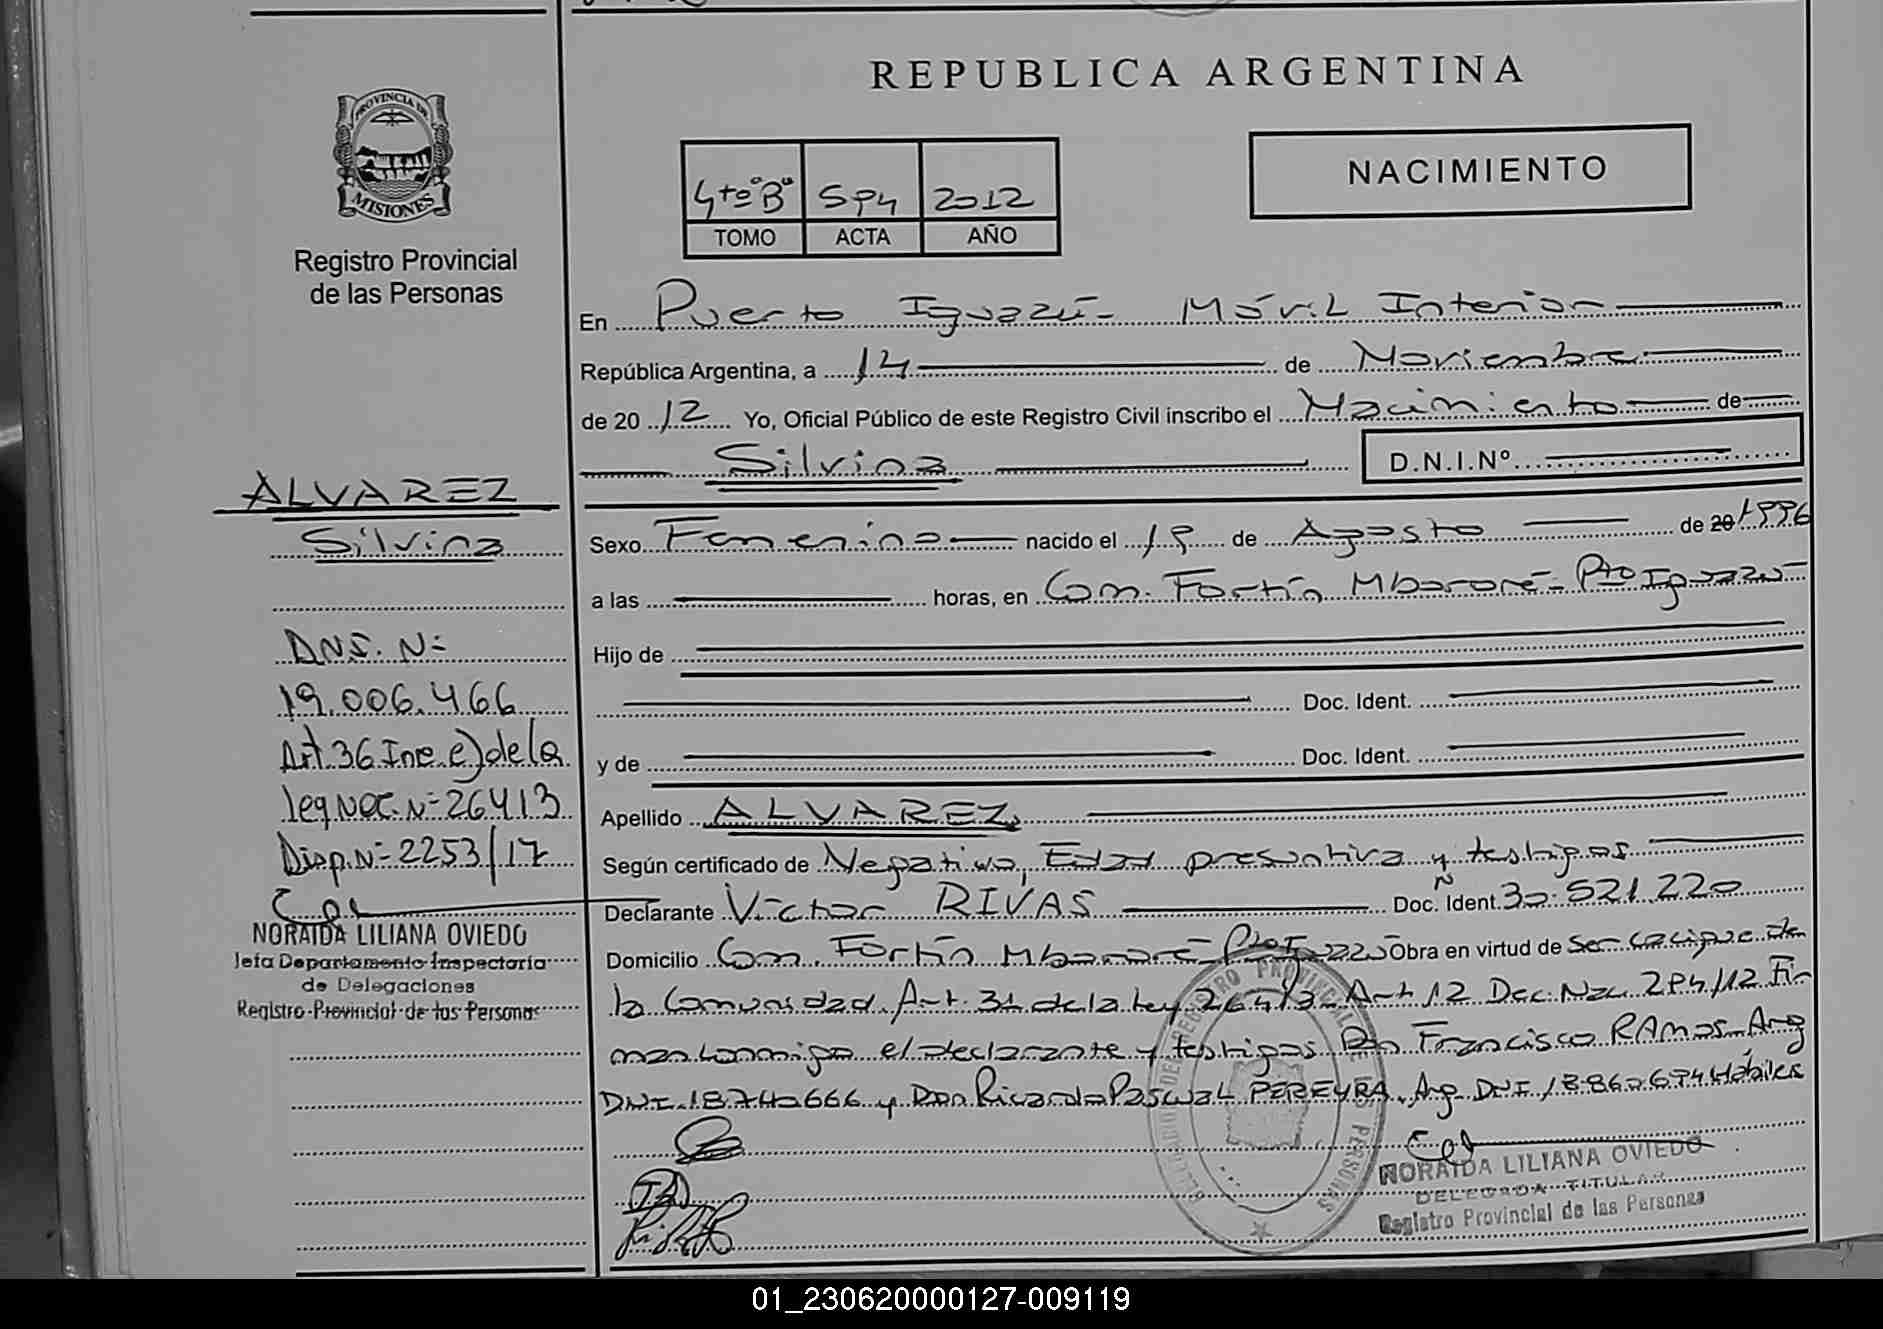 REPUBLICA ARGENTINA
PROVINCIA DE
MISIONES
Registro Provincial
de las Personas
4to "B" 594 2012
TOMO ACTA AÑO
NACIMIENTO
En Puerto Iguazú - Móvil Interior
República Argentina, a 14 de Noviembre
de 2012 Yo, Oficial Público de este Registro Civil inscribo el Nacimiento de
Silvina D.N.I.Nº
ALVAREZ
Silvina
DNI. Nº
19.006.466
Art 36 Inc e) de la
ley Nac. Nº 26413
Disp. Nº 2253/17
NORAIDA LILIANA OVIEDO
Jefa Departamento Inspectoría
de Delegaciones
Registro Provincial de las Personas
Sexo Femenino nacido el 19 de Agosto de 20 1996
a las horas, en Com. Fortín Mbororé - Pto Iguazú
Hijo de
Doc. Ident.
y de Doc. Ident.
Apellido ALVAREZ
Según certificado de Negativo, Edad presuntiva y testigos
Declarante Víctor RIVAS Doc. Ident. Nº 30.521.220
Domicilio Com. Fortín Mbororé - Pto Iguazú Obra en virtud de ser cacique de
la Comunidad Art. 31 de la Ley 26413 - Art 12 Dec. Nac. 294/12 Fir
man conmigo el declarante y testigos Don Francisco RAMOS Arg
DNI 18740666 y Don Ricardo Pascual PEREYRA, Arg DNI 18.860.694 Hábiles
DELEGACION DEL REGISTRO PROVINCIAL DE LAS PERSONAS
NORAIDA LILIANA OVIEDO
DELEGADA TITULAR
Registro Provincial de las Personas
01_230620000127-009119